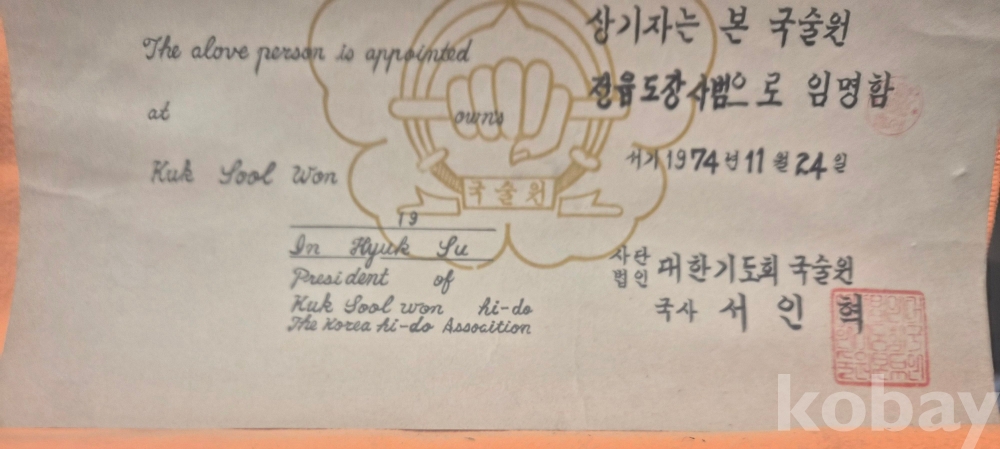 The alove person is appointed
at owns
Kuk Sool Won
19
In Hyuk Su
President of
Kuk Sool won hi-do
The Korea hi-do Assocition
국술원
상기자는 본 국술원
정읍도장사범으로 임명함
서기 1974년 11월 24일
사단법인 대한기도회 국술원
국사 서인혁
kobay